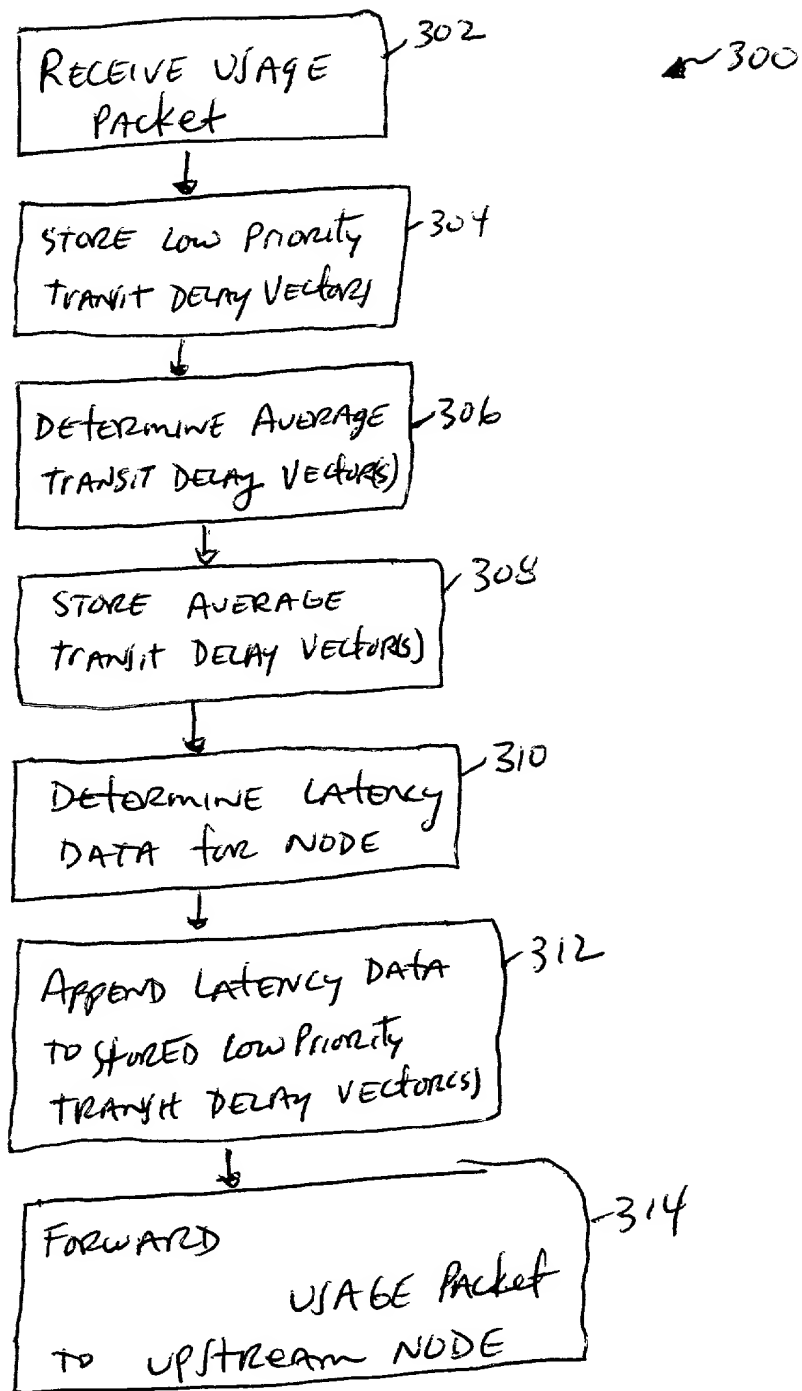 RECEIVE USAGE
Packet
302
300
STORE LOW PRIORITY
TRANSIT DELAY VECTORS
304
DETERMINE AVERAGE
TRANSIT DELAY VECTOR(S)
306
STORE AVERAGE
TRANSIT DELAY VECTOR(S)
308
DETERMINE LATENCY
DATA for NODE
310
APPEND LATENCY DATA
TO STORED LOW PRIORITY
TRANSIT DELAY VECTOR(S)
312
FORWARD
USAGE Packet
TO UPSTREAM NODE
314